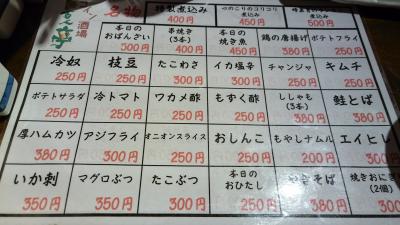 酒場
名物
特製煮込み
400円
心のこりのコリコリ
煮込み
450円
煮込み
500円
本日の
おばんざい
300円
串焼き
(3本)
400円
本日の
焼き魚
450円
鶏の唐揚げ
380円
ポテトフライ
250円
冷奴
250円
枝豆
250円
たこわさ
300円
イカ塩辛
300円
チャンジャ
250円
キムチ
250円
ポテトサラダ
250円
冷トマト
250円
ワカメ酢
250円
もずく酢
250円
ししゃも
(3本)
380円
鮭とば
380円
厚ハムカツ
380円
アジフライ
300円
オニオンスライス
250円
おしんこ
250円
もやしナムル
300円
エイヒレ
300円
いか刺
350円
マグロぶつ
350円
たこぶつ
300円
本日の
おひたし
250円
そば
380円
焼きおにぎり
(2個)
300円